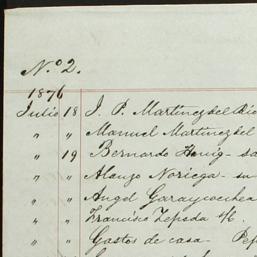 N.º 2.
1876
Julio 18 J. P. Martinez del Rio
" " Manuel Martinez del
" 19 Bernardo Henig - sa
" " Alonzo Noriega - su
" " Angel Garaycochea
" " Francisco Zepeda
" " Gastos de casa - Pep